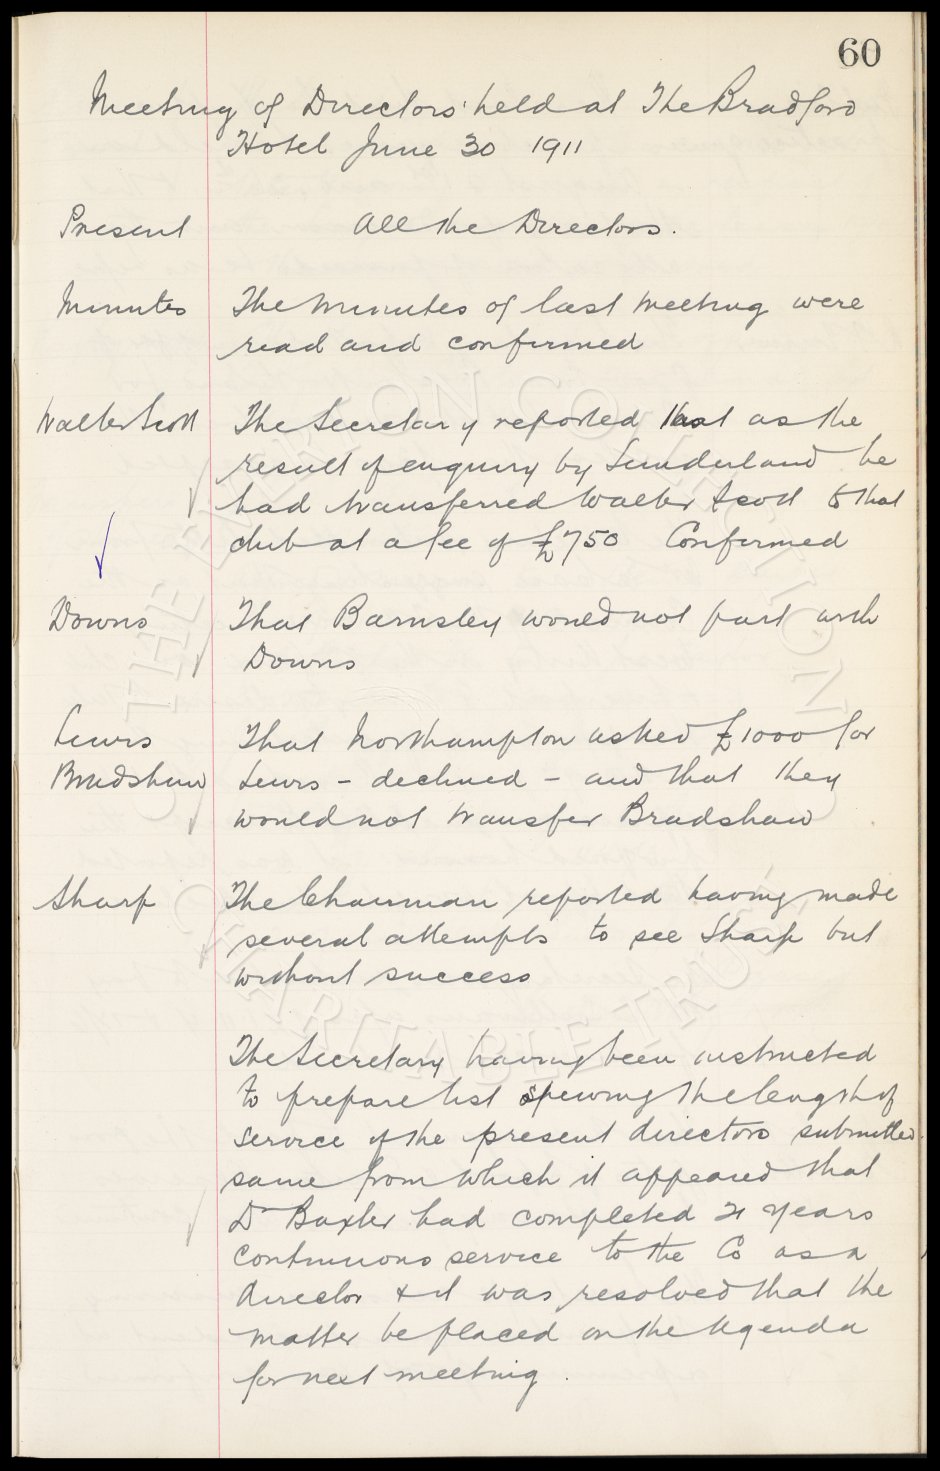 60
Meeting of Directors' held at The Bradford
Hotel June 30 1911
Present All the Directors.
Minutes The Minutes of last meeting were
read and confirmed
Walter Scott The Secretary reported that as the
result of enquiry by Sunderland he
had transferred Walter Scott to that
club at a fee of £750 Confirmed
Downs That Barnsley would not part with
Downs
Lewis That Northampton asked £1000 for
Bradshaw Lewis - declined - and that they
would not transfer Bradshaw
Sharp The Chairman reported having made
several attempts to see Sharp but
without success
The Secretary having been instructed
to prepare list shewing the length of
service of the present directors submitted
same from which it appeared that
Dr Baxter had completed 21 years
continuous service to the Co as a
director & it was resolved that the
matter be placed on the Agenda
for next meeting.
© THE EVERTON COLLECTION
CHARITABLE TRUST